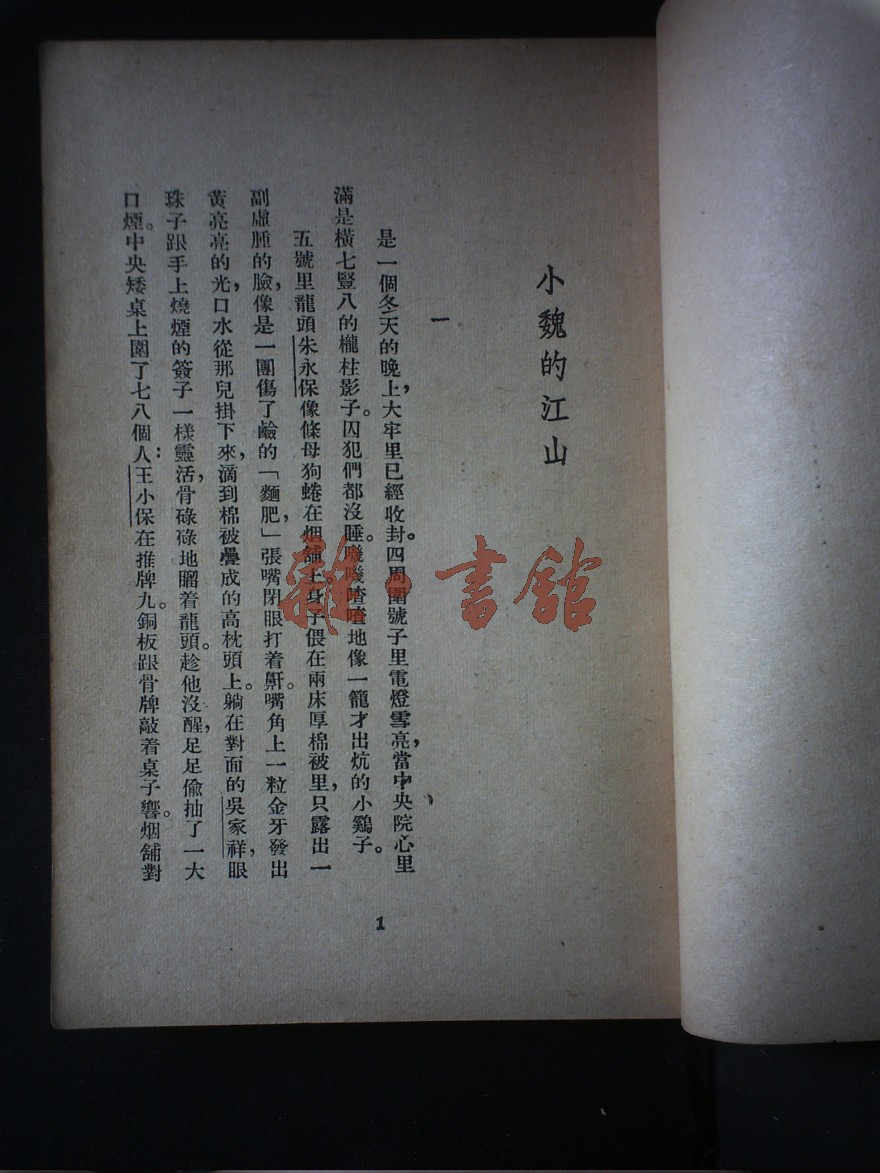 小魏的江山
一
是一個冬天的晚上，大牢里已經收封。四周圍號子里電燈雪亮，當中央院心里
滿是橫七豎八的櫳柱影子。囚犯們都沒睡。嘰嘰喳喳地像一籠才出炕的小鷄子。
五號里龍頭朱永保像條母狗蜷在烟舖上。身子偎在兩床厚棉被里，只露出一
副虛腫的臉，像是一團傷了鹼的「麵肥」，張嘴閉眼打着鼾。嘴角上一粒金牙發出
黃亮亮的光，口水從那兒掛下來，滴到棉被疊成的高枕頭上。躺在對面的吳家祥，眼
珠子跟手上燒煙的簽子一樣靈活，骨碌碌地瞩着龍頭。趁他沒醒，足足偷抽了一大
口煙。中央矮桌上圍了七八個人：王小保在推牌九。銅板跟骨牌敲着桌子響。烟舖對
1
雜·書館